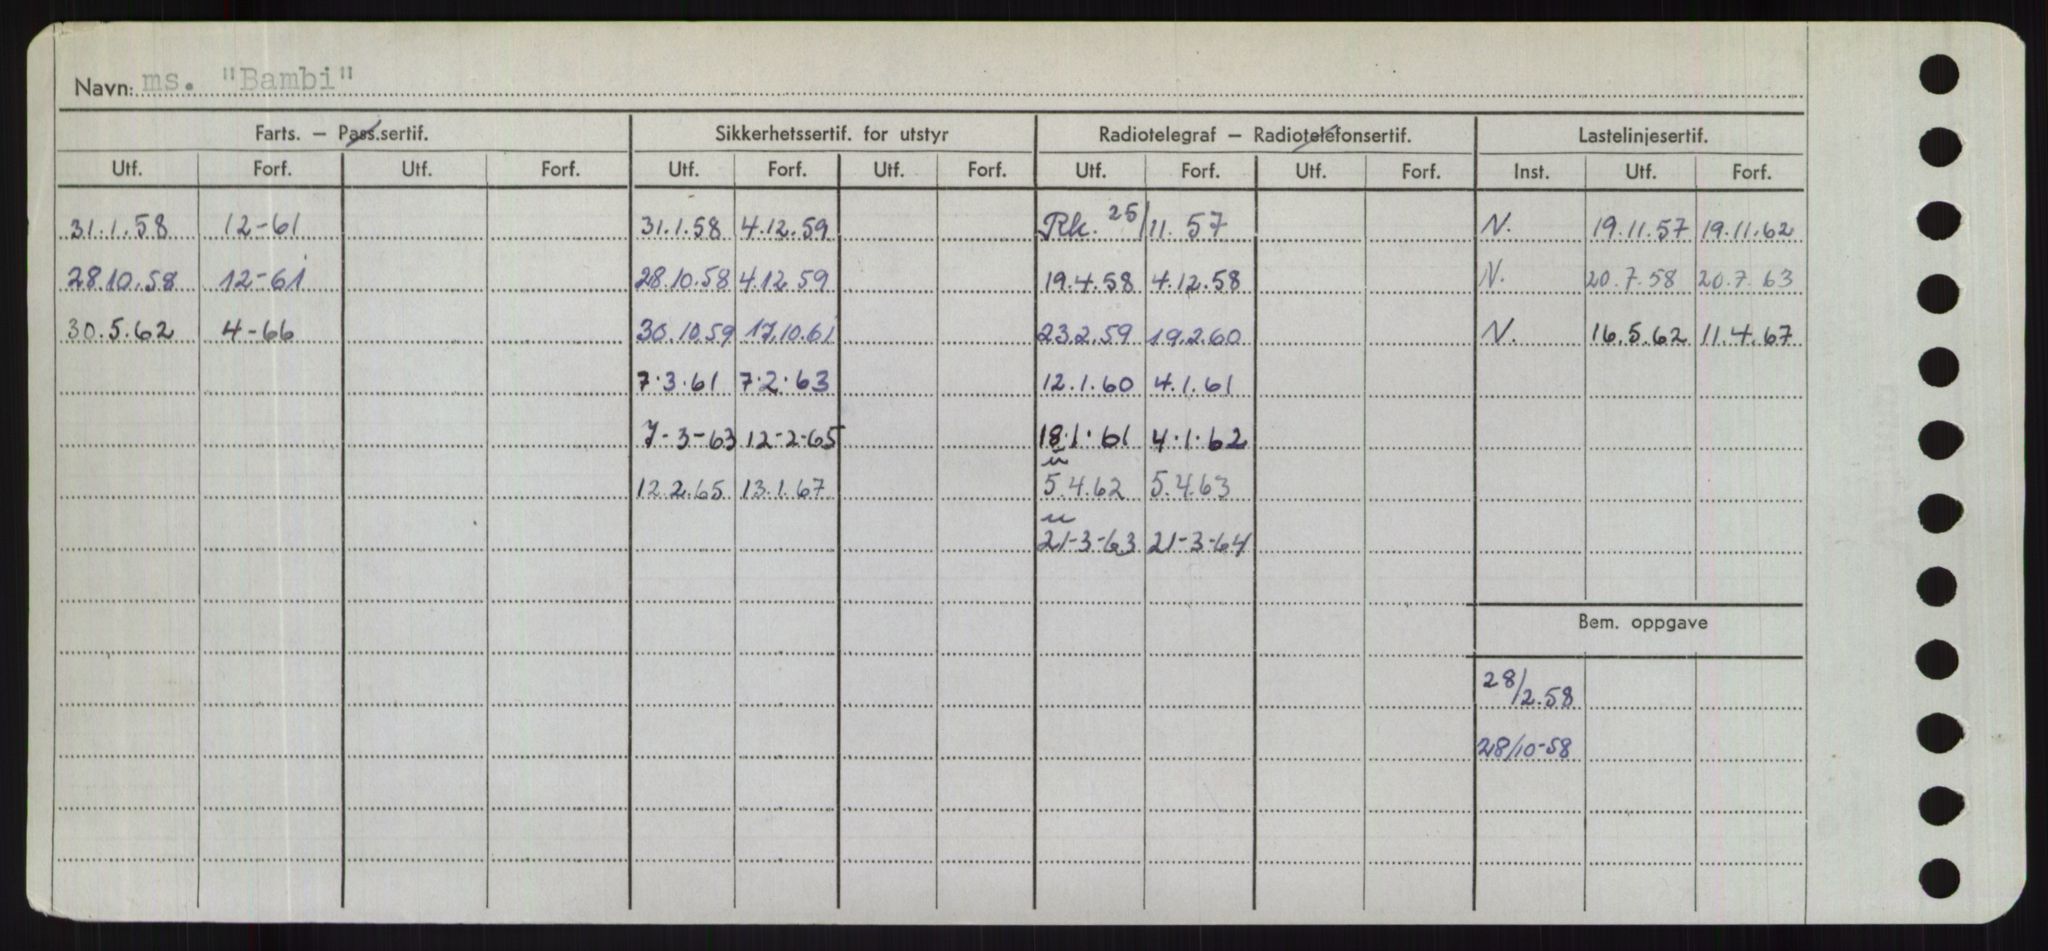 Navn: ms. "Bambi"
Farts. — Pass.sertif. Sikkerhetssertif. for utstyr Radiotelegraf — Radiotelefonsertif. Lastelinjesertif.
Utf. Forf. Utf. Forf. Utf. Forf. Utf. Forf. Utf. Forf. Utf. Forf. Inst. Utf. Forf.
31.1.58 12-61 31.1.58 4.12.59 Rk. 25/11.57 N. 19.11.57 19.11.62
28.10.58 12-61 28.10.58 4.12.59 19.4.58 4.12.58 N. 20.7.58 20.7.63
30.5.62 4-66 30.10.59 17.10.61 23.2.59 19.2.60 N. 16.5.62 11.4.67
7.3.61 7.2.63 12.1.60 4.1.61
7-3-63 12-2-65 18.1.61 4.1.62
12.2.65 13.1.67 5.4.62 5.4.63
21-3-63 21-3-64
Bem. oppgave
28/2.58
28/10-58